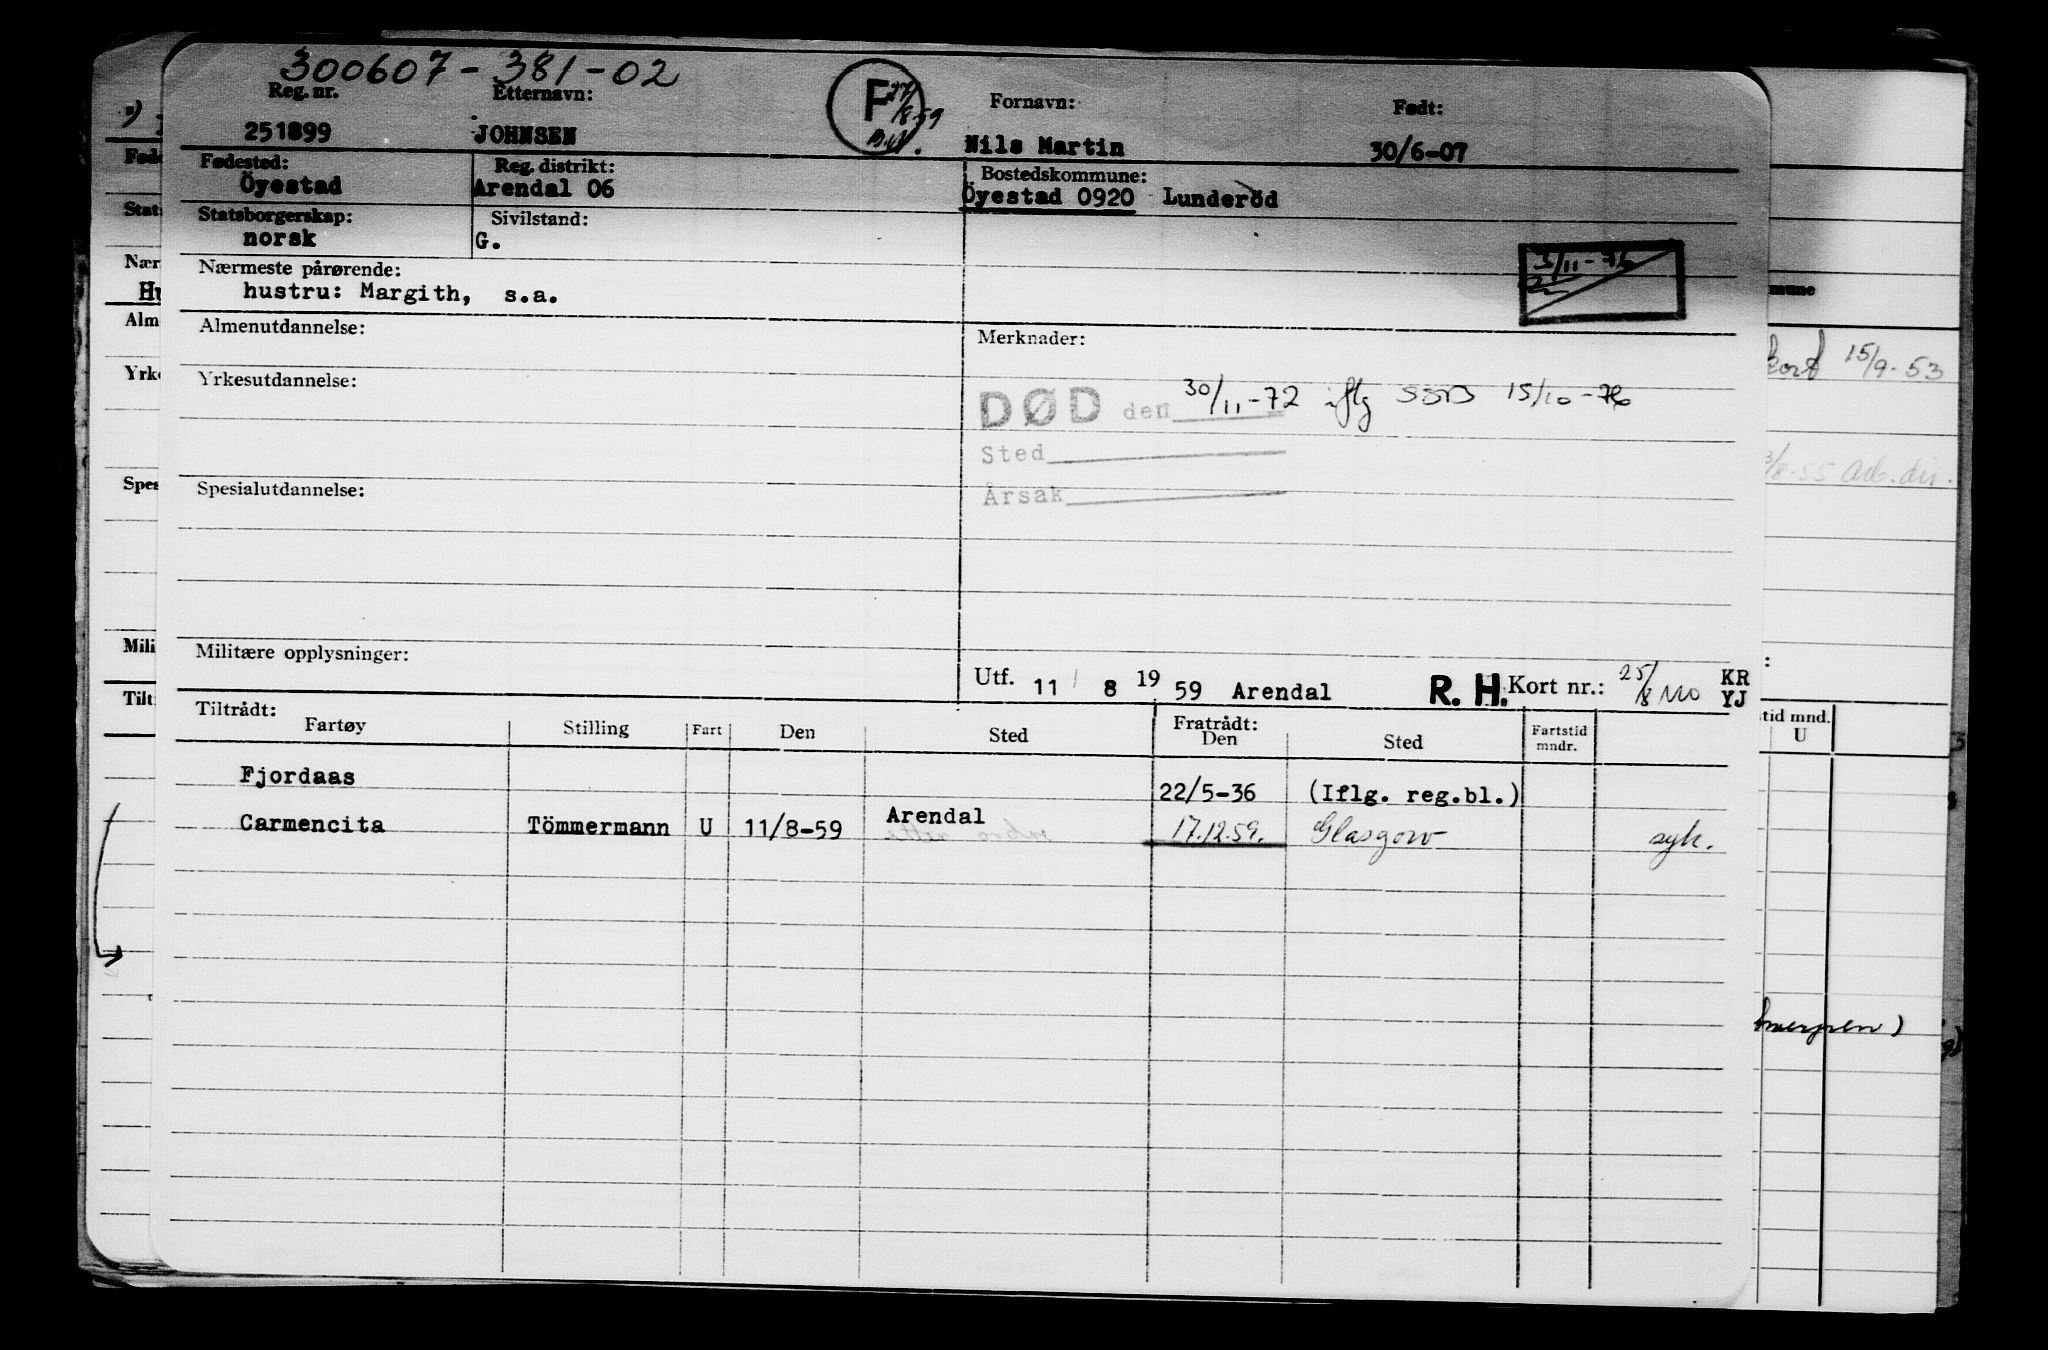 300607 - 381 - 02
Reg. nr. Etternavn: Fornavn: Født:
251899 JOHNSEN Nils Martin 30/6-07
F 27/8-59
Fødested: Reg. distrikt: Bostedskommune:
Öyestad Arendal 06 Öyestad 0920 Lunderöd
Statsborgerskap: Sivilstand:
norsk G.
3/11-76
Nærmeste pårørende:
hustru: Margith, s.a.
Almenutdannelse: Merknader:
Yrkesutdannelse:
DØD den 30/11-72 iflg SSB 15/10-76
Sted
Årsak
Spesialutdannelse:
Militære opplysninger:
Utf. 11/8 1959 Arendal R. H. Kort nr.: 25/8 KR
YJ
Tiltrådt: Fratrådt:
Fartøy Stilling Fart Den Sted Den Sted Fartstid mndr.
Fjordaas 22/5-36 (Iflg. reg.bl.)
Carmencita Tömmermann U 11/8-59 Arendal 17.12.59. Glasgow syk.
Fød
Stat
Nær
Hu
Alm
Yrke
Spes
Mili
Tilt
mune
kort 15/9-53
55 arb.dir.
tid mnd.
U